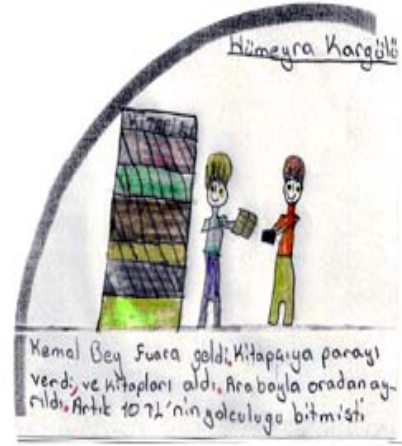 Hümeyra Kargülü
KİTAPLAR
Kemal Bey Fuara geldi. Kitapçıya parayı
verdi, ve kitapları aldı. Arabayla oradan ay-
rıldı. Artık 10 TL'nin yolculugu bitmişti